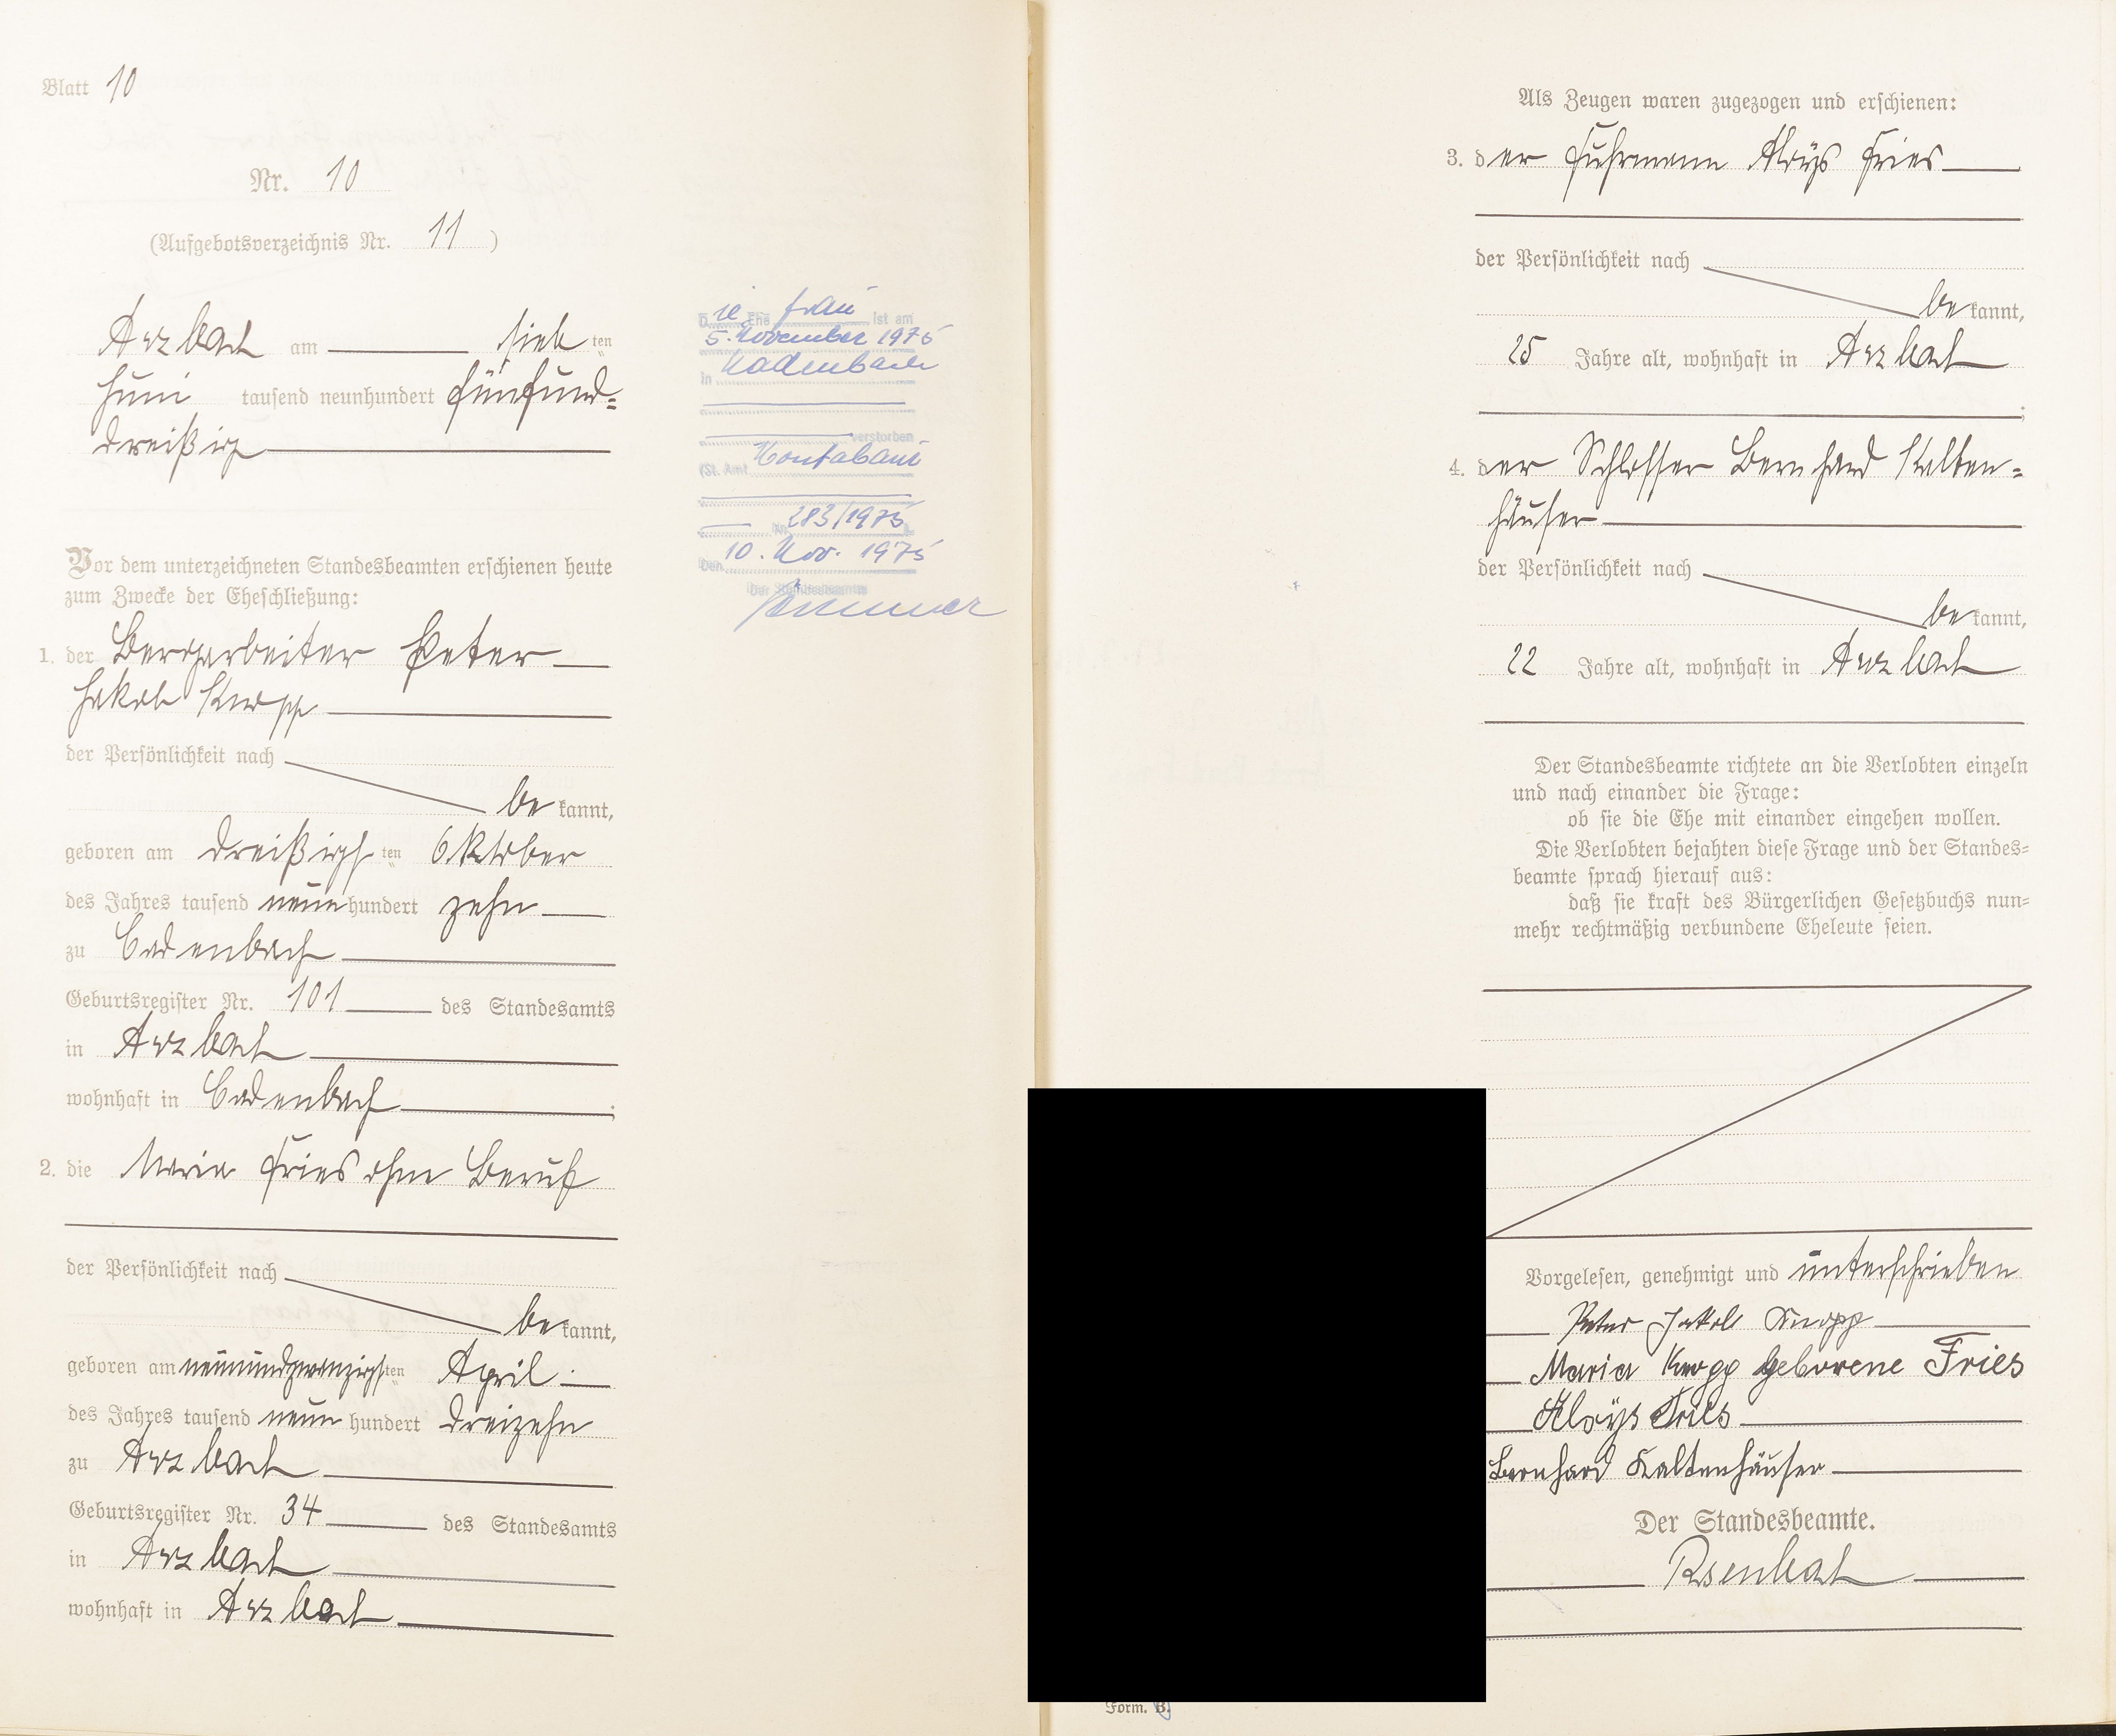 Blatt 10
Nr. 10
(Aufgebotsverzeichnis Nr. 11 )
Arzbach am sieb ten
Juni tausend neunhundert fünfund=
dreißig
Vor dem unterzeichneten Standesbeamten erschienen heute
zum Zwecke der Eheschließung:
1. der Bergarbeiter Peter
Jakob Knopp
der Persönlichkeit nach
be kannt,
geboren am dreißigs ten Oktober
des Jahres tausend neun hundert zehn
zu Cadenbach
Geburtsregister Nr. 101 des Standesamts
in Arzbach
wohnhaft in Cadenbach ;
2. die Maria Fries ohne Beruf
der Persönlichkeit nach
be kannt,
geboren am neunundzwanzigs ten April
des Jahres tausend neun hundert dreizehn
zu Arzbach
Geburtsregister Nr. 34 des Standesamts
in Arzbach
wohnhaft in Arzbach
D ie Ehe frau ist am
5. November 1975
in Kadenbach
verstorben
(St. Amt Montabaur
Nr. 283/1975
Den 10. Nov. 1975
Der Standesbeamte
Als Zeugen waren zugezogen und erschienen:
3. der Fuhrmann Aloÿs Fries
der Persönlichkeit nach
be kannt,
25 Jahre alt, wohnhaft in Arzbach
;
4. der Schlosser Bernhard Kalten=
häuser
der Persönlichkeit nach
be kannt,
22 Jahre alt, wohnhaft in Arzbach
Der Standesbeamte richtete an die Verlobten einzeln
und nach einander die Frage:
ob sie die Ehe mit einander eingehen wollen.
Die Verlobten bejahten diese Frage und der Standes=
beamte sprach hierauf aus:
daß sie kraft des Bürgerlichen Gesetzbuchs nun=
mehr rechtmäßig verbundene Eheleute seien.
Vorgelesen, genehmigt und unterschrieben
Peter Jakob Knopp
Maria Knopp geborene Fries
Aloÿs Fries
Bernhard Kaltenhäuser
Der Standesbeamte.
Form. B.